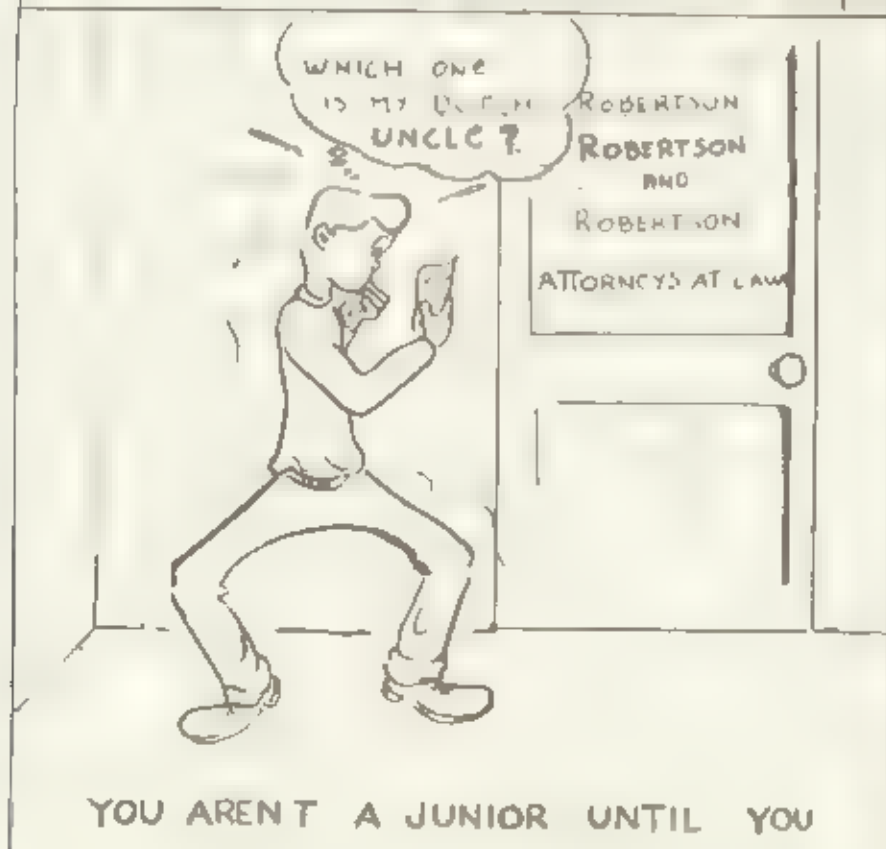 WHICH ONE
IS MY DUTCH
UNCLE?
ROBERTSON
ROBERTSON
AND
ROBERTSON
ATTORNEYS AT LAW
YOU AREN'T A JUNIOR UNTIL YOU